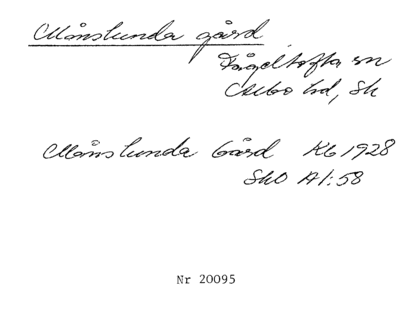 Månslunda gård
Fågeltofta sn
Albo hd, Sk
Månslunda Gård Kb 1928
SkO A1:58
Nr 20095